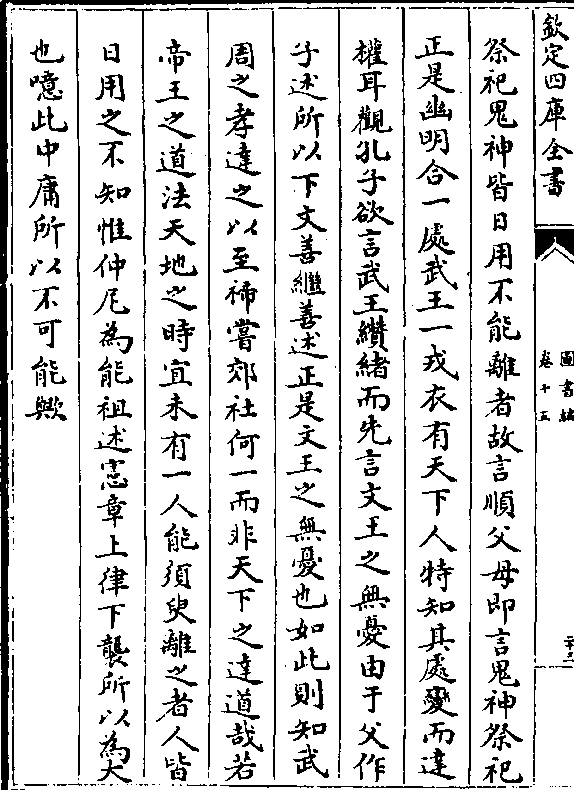 欽定四庫全書
圖書編
卷十五
祭祀鬼神皆日用不能離者故言順父母即言鬼神祭祀
正是幽明合一處武王一戎衣有天下人特知其處變而達
權耳觀孔子欲言武王纘緒而先言文王之無憂由于父作
子述所以下文善繼善述正是文王之無憂也如此則知武
周之孝達之以至禘嘗郊社何一而非天下之達道哉若
帝王之道法天地之時宜未有一人能須臾離之者人皆
日用之不知惟仲尼為能祖述憲章上律下襲所以為大
也噫此中庸所以不可能歟